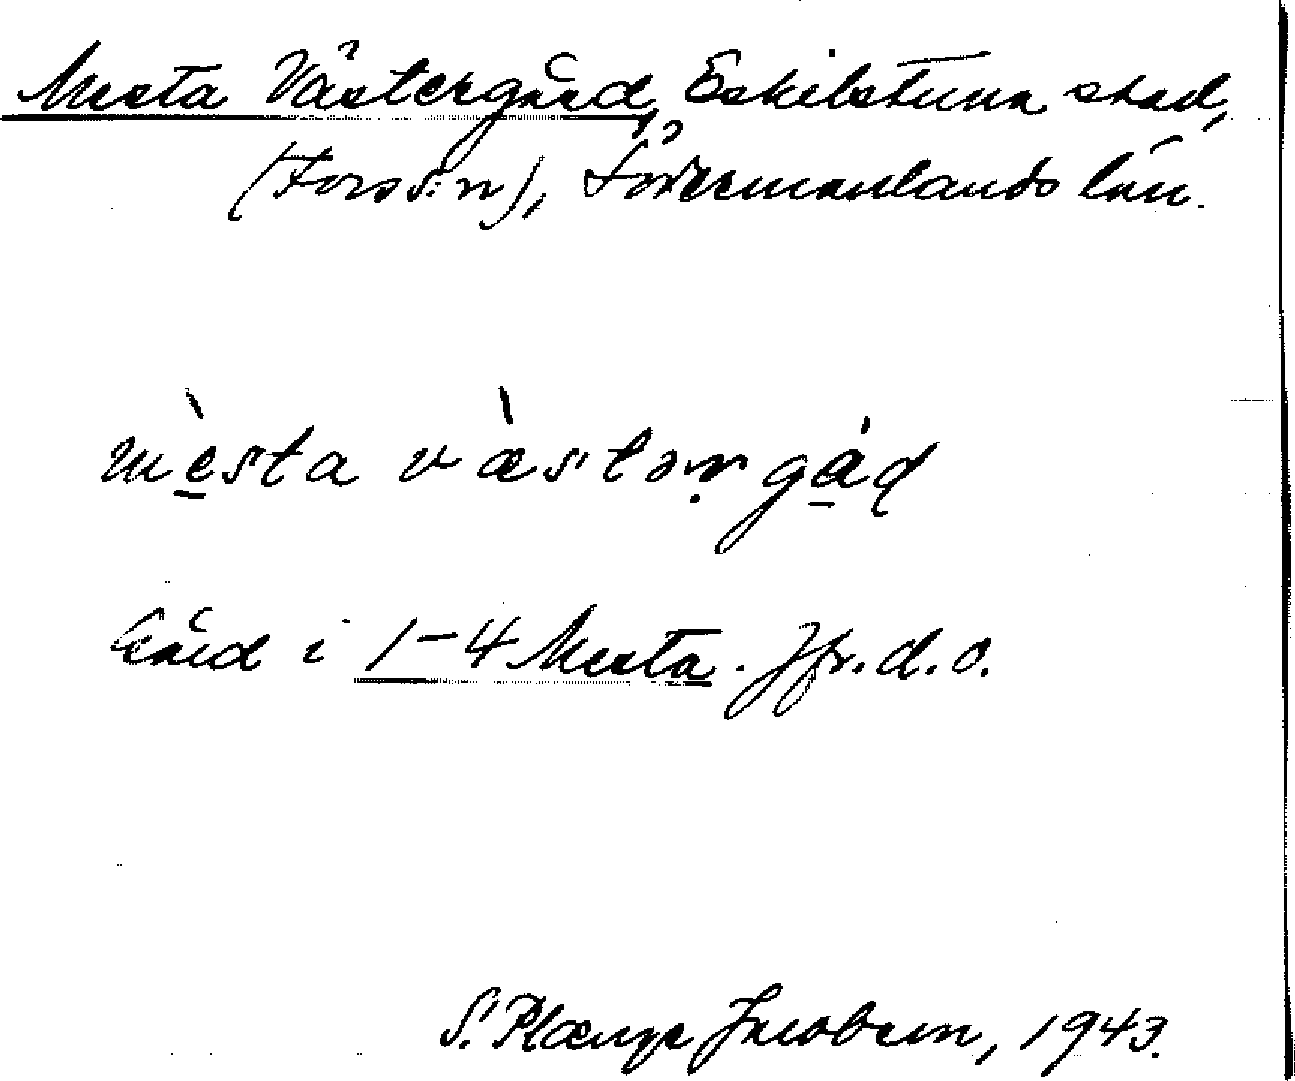 Mesta Västergård, Eskilstuna stad,
(Fors s:n), Södermanlands län.
mèsta vàstərgåd
Gård i 1-4 Mesta. Jfr. d. o.
S. Plænge Jacobson, 1943.